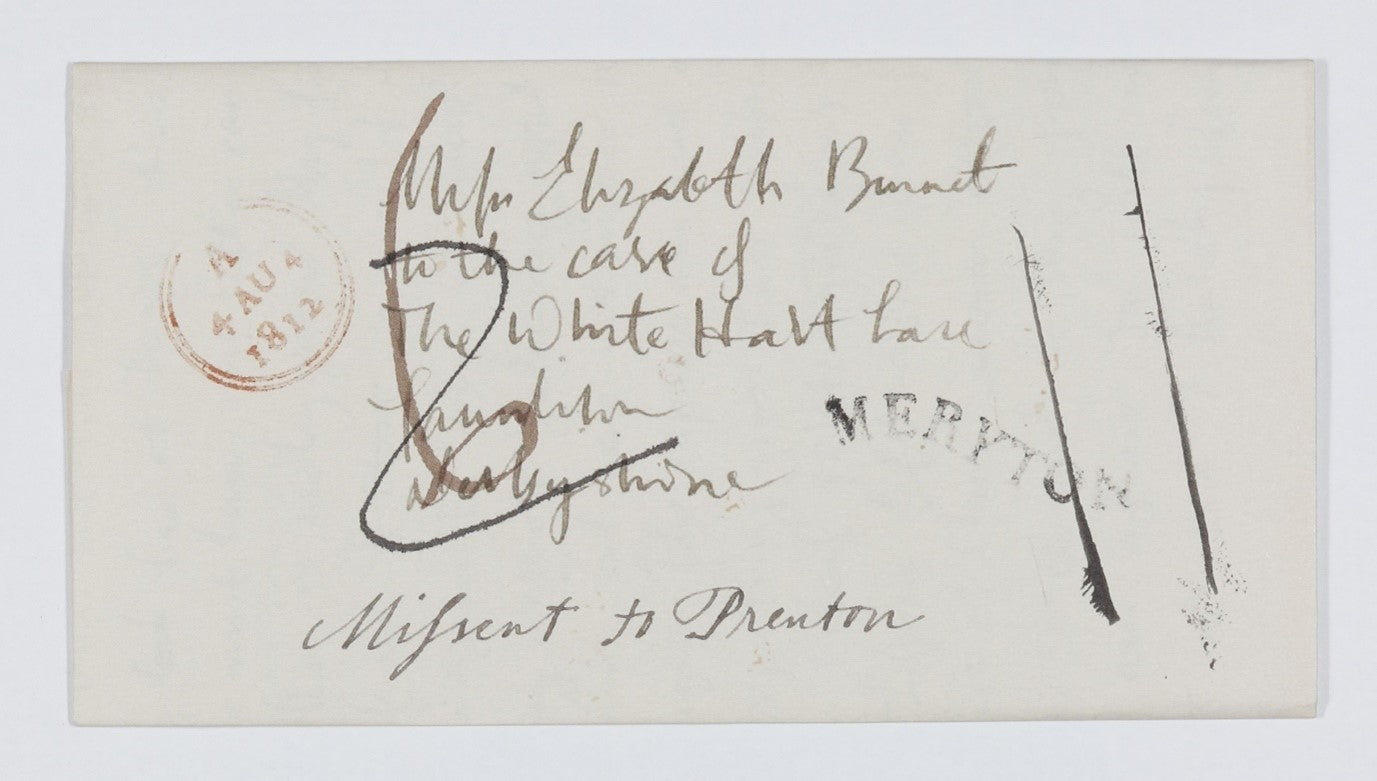 A
4 AU 4
1812
Miſs Elizabeth Bennet
to the care of
The White Hart Lane
Lambton
Derbyshire
MERYTON
Miſsent to Prenton